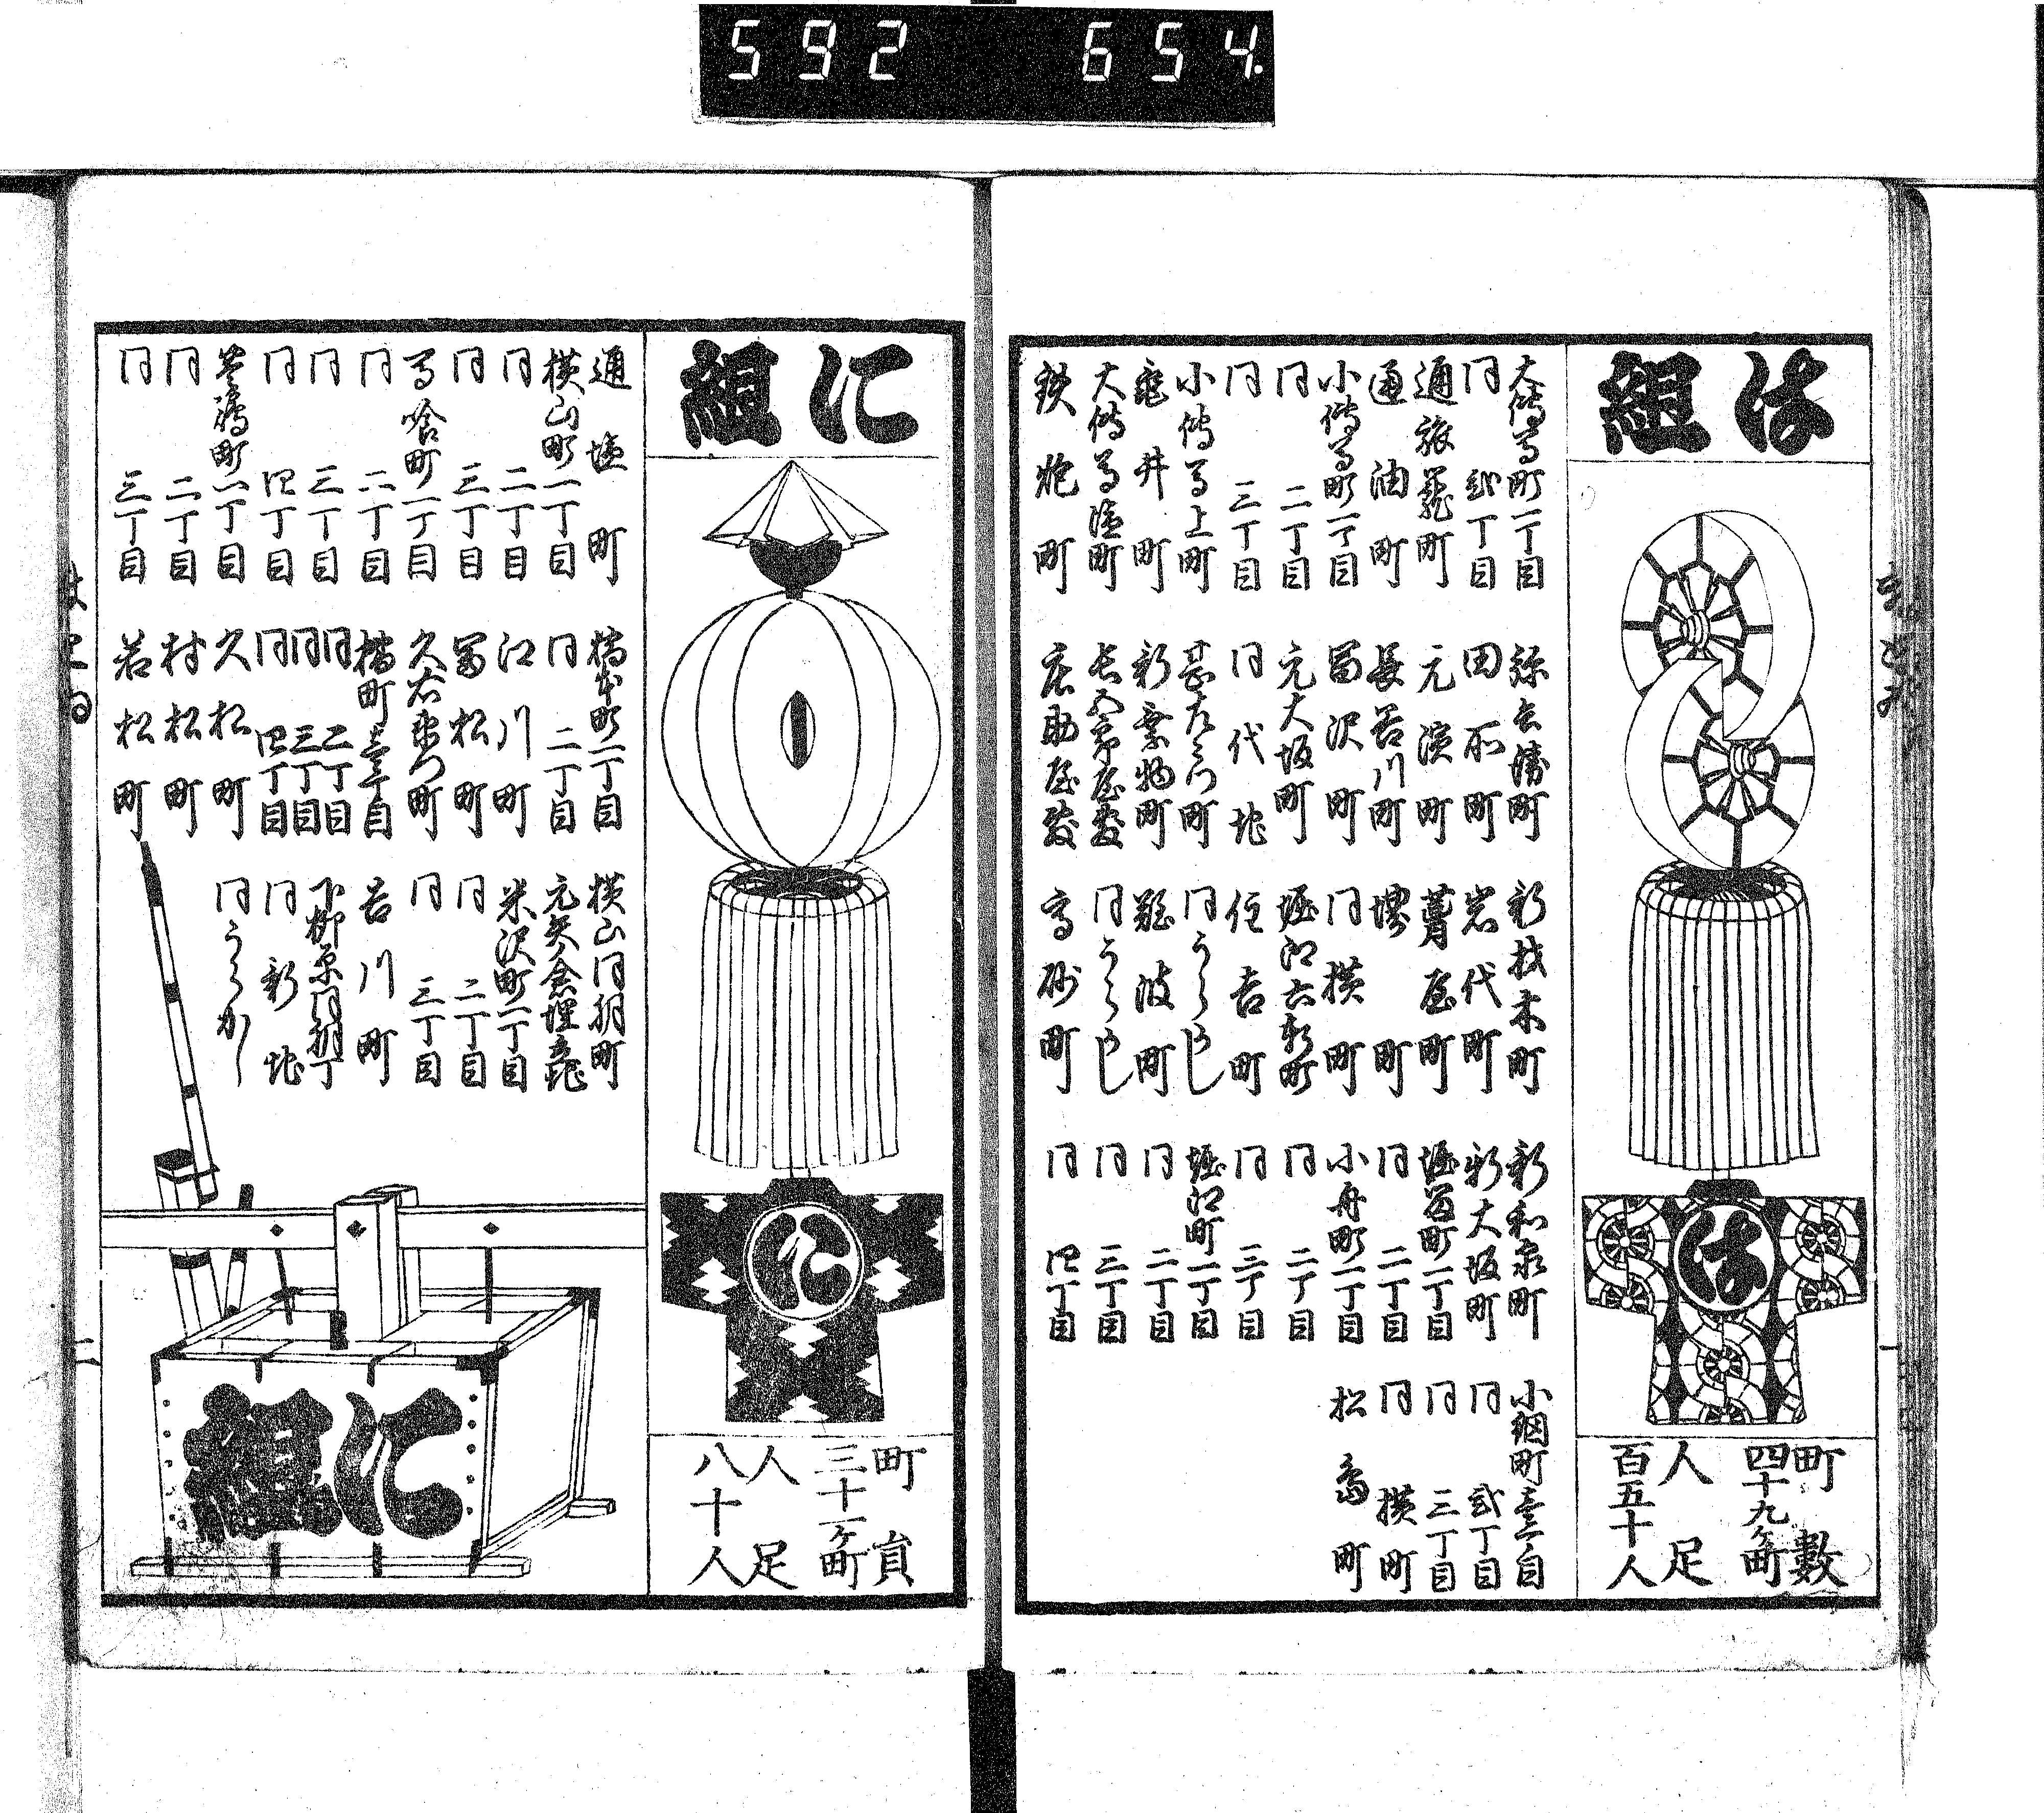 592 654.
は組
大傳馬町一丁目
同 弐丁目
通旅籠町
通油町
小傳馬町一丁目
同 二丁目
同 三丁目
小傳馬上町
龜井町
大傳馬塩町
鉄炮町
弥兵衛町
田所町
元濱町
長谷川町
冨沢町
元大坂町
同代地
甚左衛門町
新乗物町
長五郎屋敷
庄助屋敷
新材木町
岩代町
葺屋町
堺町
同横町
堀江六軒町
住吉町
同うらかし
難波町
同うらかし
高砂町
新和泉町
新大坂町
堀留町一丁目
同 二丁目
小舟町一丁目
同 二丁目
同 三丁目
堀江町一丁目
同 二丁目
同 三丁目
同 四丁目
小網町壹丁目
同 弐丁目
同 三丁目
同 横町
松島町
は
町數
四十九ヶ町
人足
百五十人
に組
通塩町
横山町一丁目
同 二丁目
同 三丁目
馬喰町一丁目
同 二丁目
同 三丁目
同 四丁目
豊嶋町一丁目
同 二丁目
同 三丁目
橋本町一丁目
同 二丁目
江川町
冨松町
久右衛門町
橘町壹丁目
同 二丁目
同 三丁目
同 四丁目
久松町
村松町
若松町
横山同朋町
元矢ノ倉埋立地
米沢町一丁目
同 二丁目
同 三丁目
吉川町
下柳原同朋丁
同新地
同うらかし
に
町員
三十一ヶ町
人足
八十人
に組